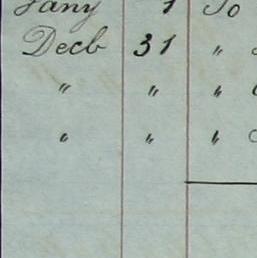 Jany 1 To
Decb 31 "
" " "
" " "